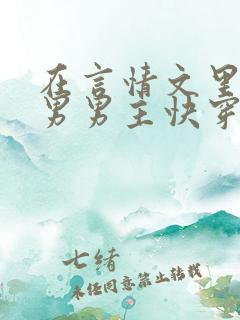 在言情文里
男男主快穿
七绪
未经同意禁止转载